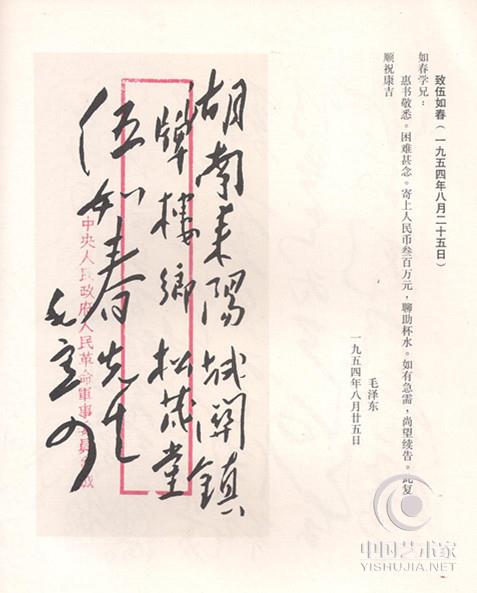 致伍如春(一九五四年八月二十五日)
如春学兄：
惠书敬悉。困难甚念。寄上人民币叁百万元，聊助杯水。如有急需，尚望续告。此复
顺祝康吉
毛泽东
一九五四年八月廿五日
湖南耒陽城關鎮
牌樓鄉松茂堂
伍如春先生
毛寄
中央人民政府人民革命軍事委員會緘
中国艺术家
YISHUJIA.NET